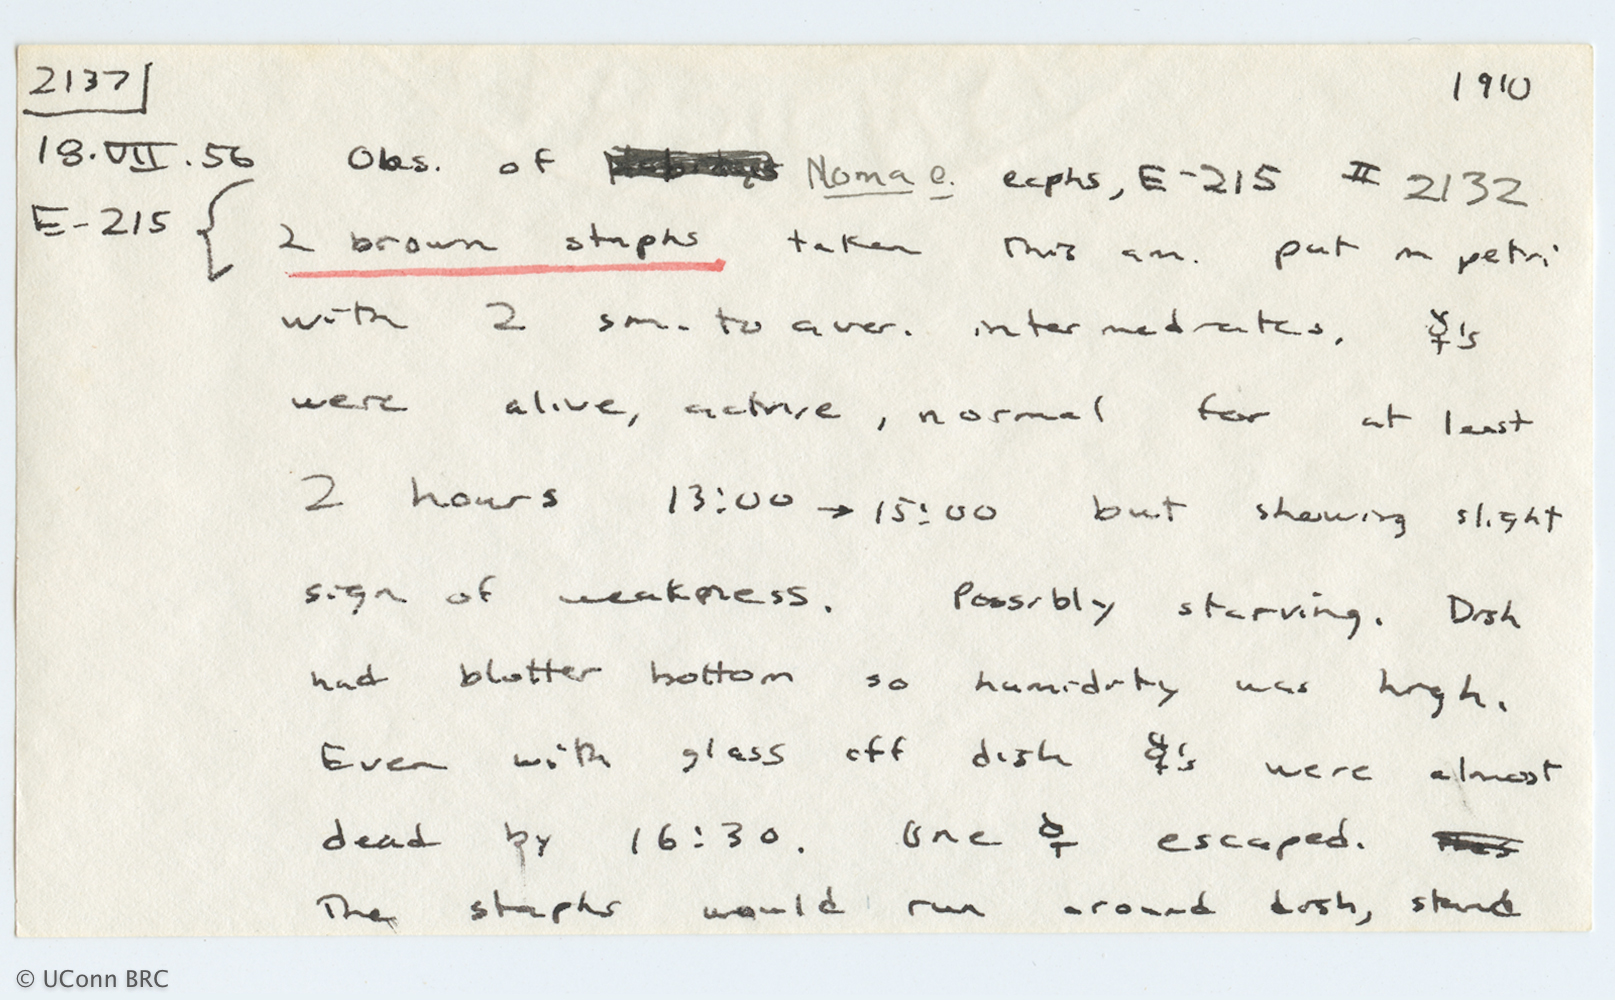 2137 1910
18.VII.56 Obs. of Noma e. ecphs, E-215 II 2132
E-215 2 brown staphs taken this am. put in petri
with 2 sm. to aver. intermediates. ☿'s
were alive, active, normal for at least
2 hours 13:00 → 15:00 but showing slight
sign of weakness. Possibly starving. Dish
had blotter bottom so humidity was high.
Even with glass off dish ☿'s were almost
dead by 16:30. One ☿ escaped.
The staphs would run around dish, stand
© UConn BRC